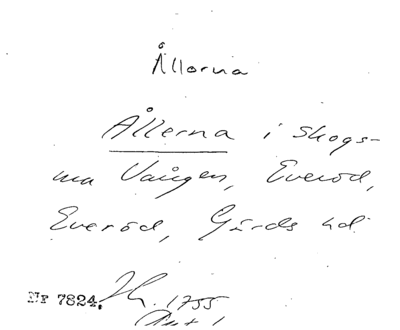 Ållorna
Ållerna i Skogs-
ma Vången, Everöd,
Everöd, Gärds hd
Nr 7824. 1755